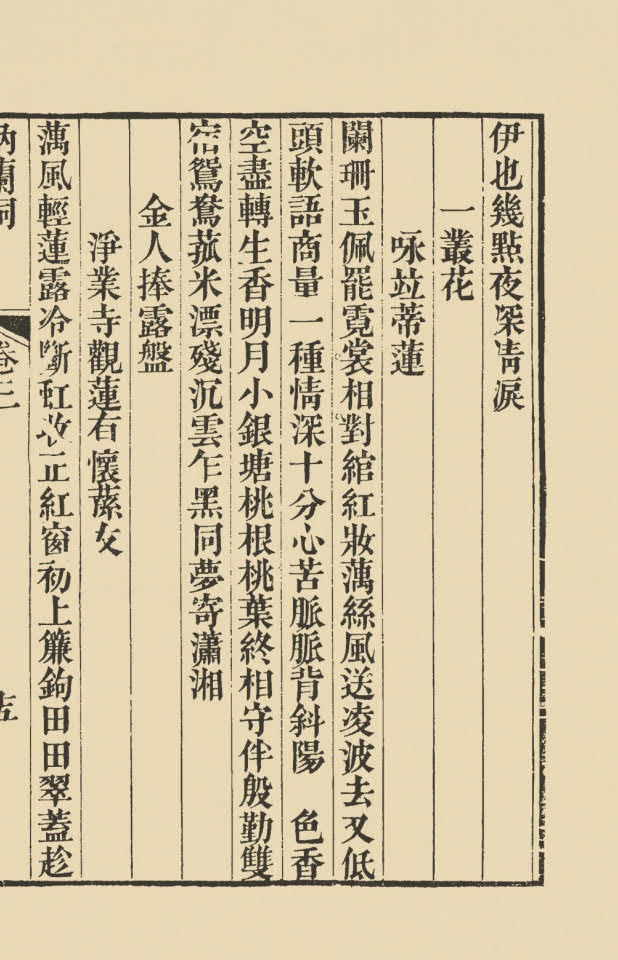 伊也幾點夜深清淚
一叢花
咏竝蒂蓮
闌珊玉佩罷霓裳相對綰紅妝蕅絲風送凌波去又低
頭軟語商量一種情深十分心苦脈脈背斜陽　色香
空盡轉生香明月小銀塘桃根桃葉終相守伴殷勤雙
宿鴛鴦菰米漂殘沉雲乍黑同夢寄瀟湘
金人捧露盤
淨業寺觀蓮有懷蓀友
蕅風輕蓮露冷斷虹收正紅窗初上簾鉤田田翠蓋趁
納蘭詞